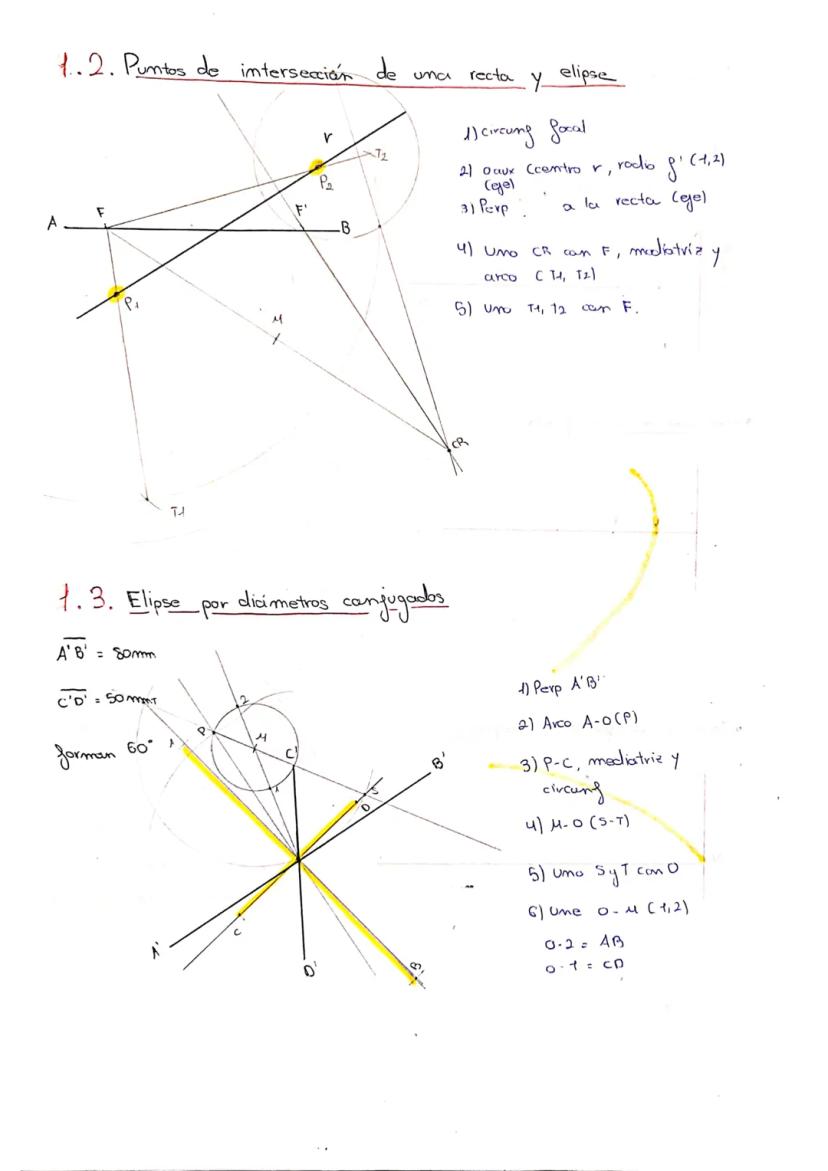 1.2. Puntos de intersección de una recta y elipse
1) circunf focal
2) O aux (centro r, radio f' (1,2)
(eje)
3) Perp. a la recta (eje)
4) Uno CR con F, mediatriz y
arco (T1, T2)
5) Uno T1, T2 con F.
r
T2
P2
F
F'
A
B
P1
M
CR
T1
1.3. Elipse por diámetros conjugados
A'B' = 80mm
C'D' = 50mm
forman 60°
T
2
P
M
A
C'
1
B'
S
D
C
A'
D'
B
1) Perp A'B'
2) Arco A-O (P)
3) P-C, mediatriz y
circunf
4) M-O (S-T)
5) Uno S y T con O
6) Une O-M (1,2)
O-2 = AB
O-1 = CD